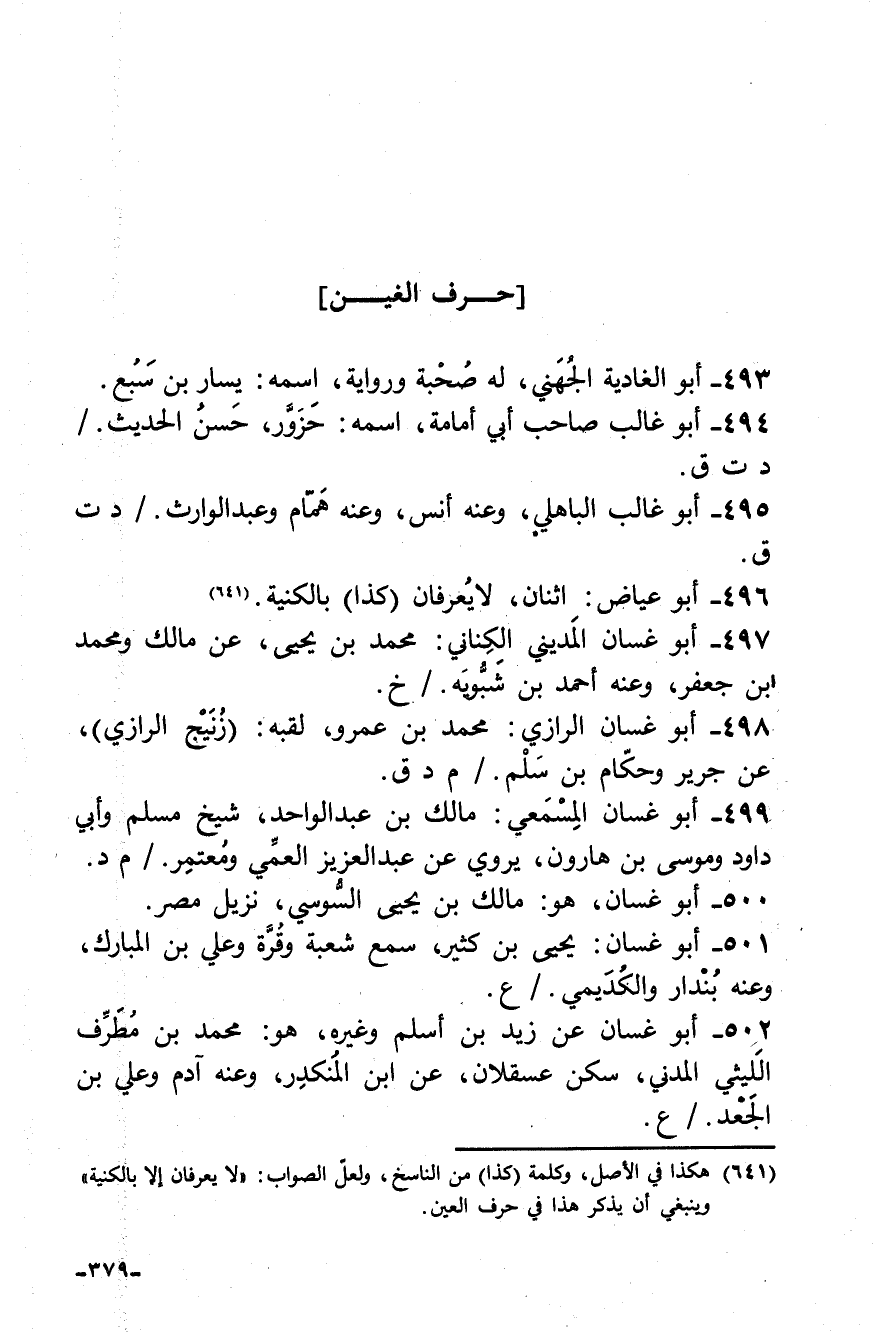 [حـــرف الغيـــن]
٤٩٣ـ أبو الغادية الجُهَني، له صُحْبة ورواية، اسمه: يسار بن سَبُع.
٤٩٤ـ أبو غالب صاحب أبي أمامة، اسمه: حَزَوَّر، حَسنُ الحديث. /
د ت ق.
٤٩٥ـ أبو غالب الباهلي، وعنه أنس، وعنه هَمّام وعبدالوارث. / د ت
ق.
٤٩٦ـ أبو عياض: اثنان، لايُعرفان (كذا) بالكنية.(٦٤١)
٤٩٧ـ أبو غسان المَديني الكِناني: محمد بن يحيى، عن مالك ومحمد
ابن جعفر، وعنه أحمد بن شَبُّويَه. / خ.
٤٩٨ـ أبو غسان الرازي: محمد بن عمرو، لقبه: (زُنَيْج الرازي)،
عن جرير وحكّام بن سَلْم. / م د ق.
٤٩٩ـ أبو غسان المِسْمَعي: مالك بن عبدالواحد، شيخ مسلم وأبي
داود وموسى بن هارون، يروي عن عبدالعزيز العمِّي ومُعتمِر. / م د.
٥٠٠ـ أبو غسان، هو: مالك بن يحيى السُّوسي، نزيل مصر.
٥٠١ـ أبو غسان: يحيى بن كثير، سمع شعبة وقُرَّة وعلي بن المبارك،
وعنه بُنْدار والكُدَيمي. / ع.
٥٠٢ـ أبو غسان عن زيد بن أسلم وغيره، هو: محمد بن مُطَرِّف
الَليثي المدني، سكن عسقلان، عن ابن المُنكدِر، وعنه آدم وعلي بن
الجَعْد. / ع.
(٦٤١) هكذا في الأصل، وكلمة (كذا) من الناسخ، ولعلّ الصواب: «لا يعرفان إلا بالكنية»
وينبغي أن يذكر هذا في حرف العين.
ـ٣٧٩ـ